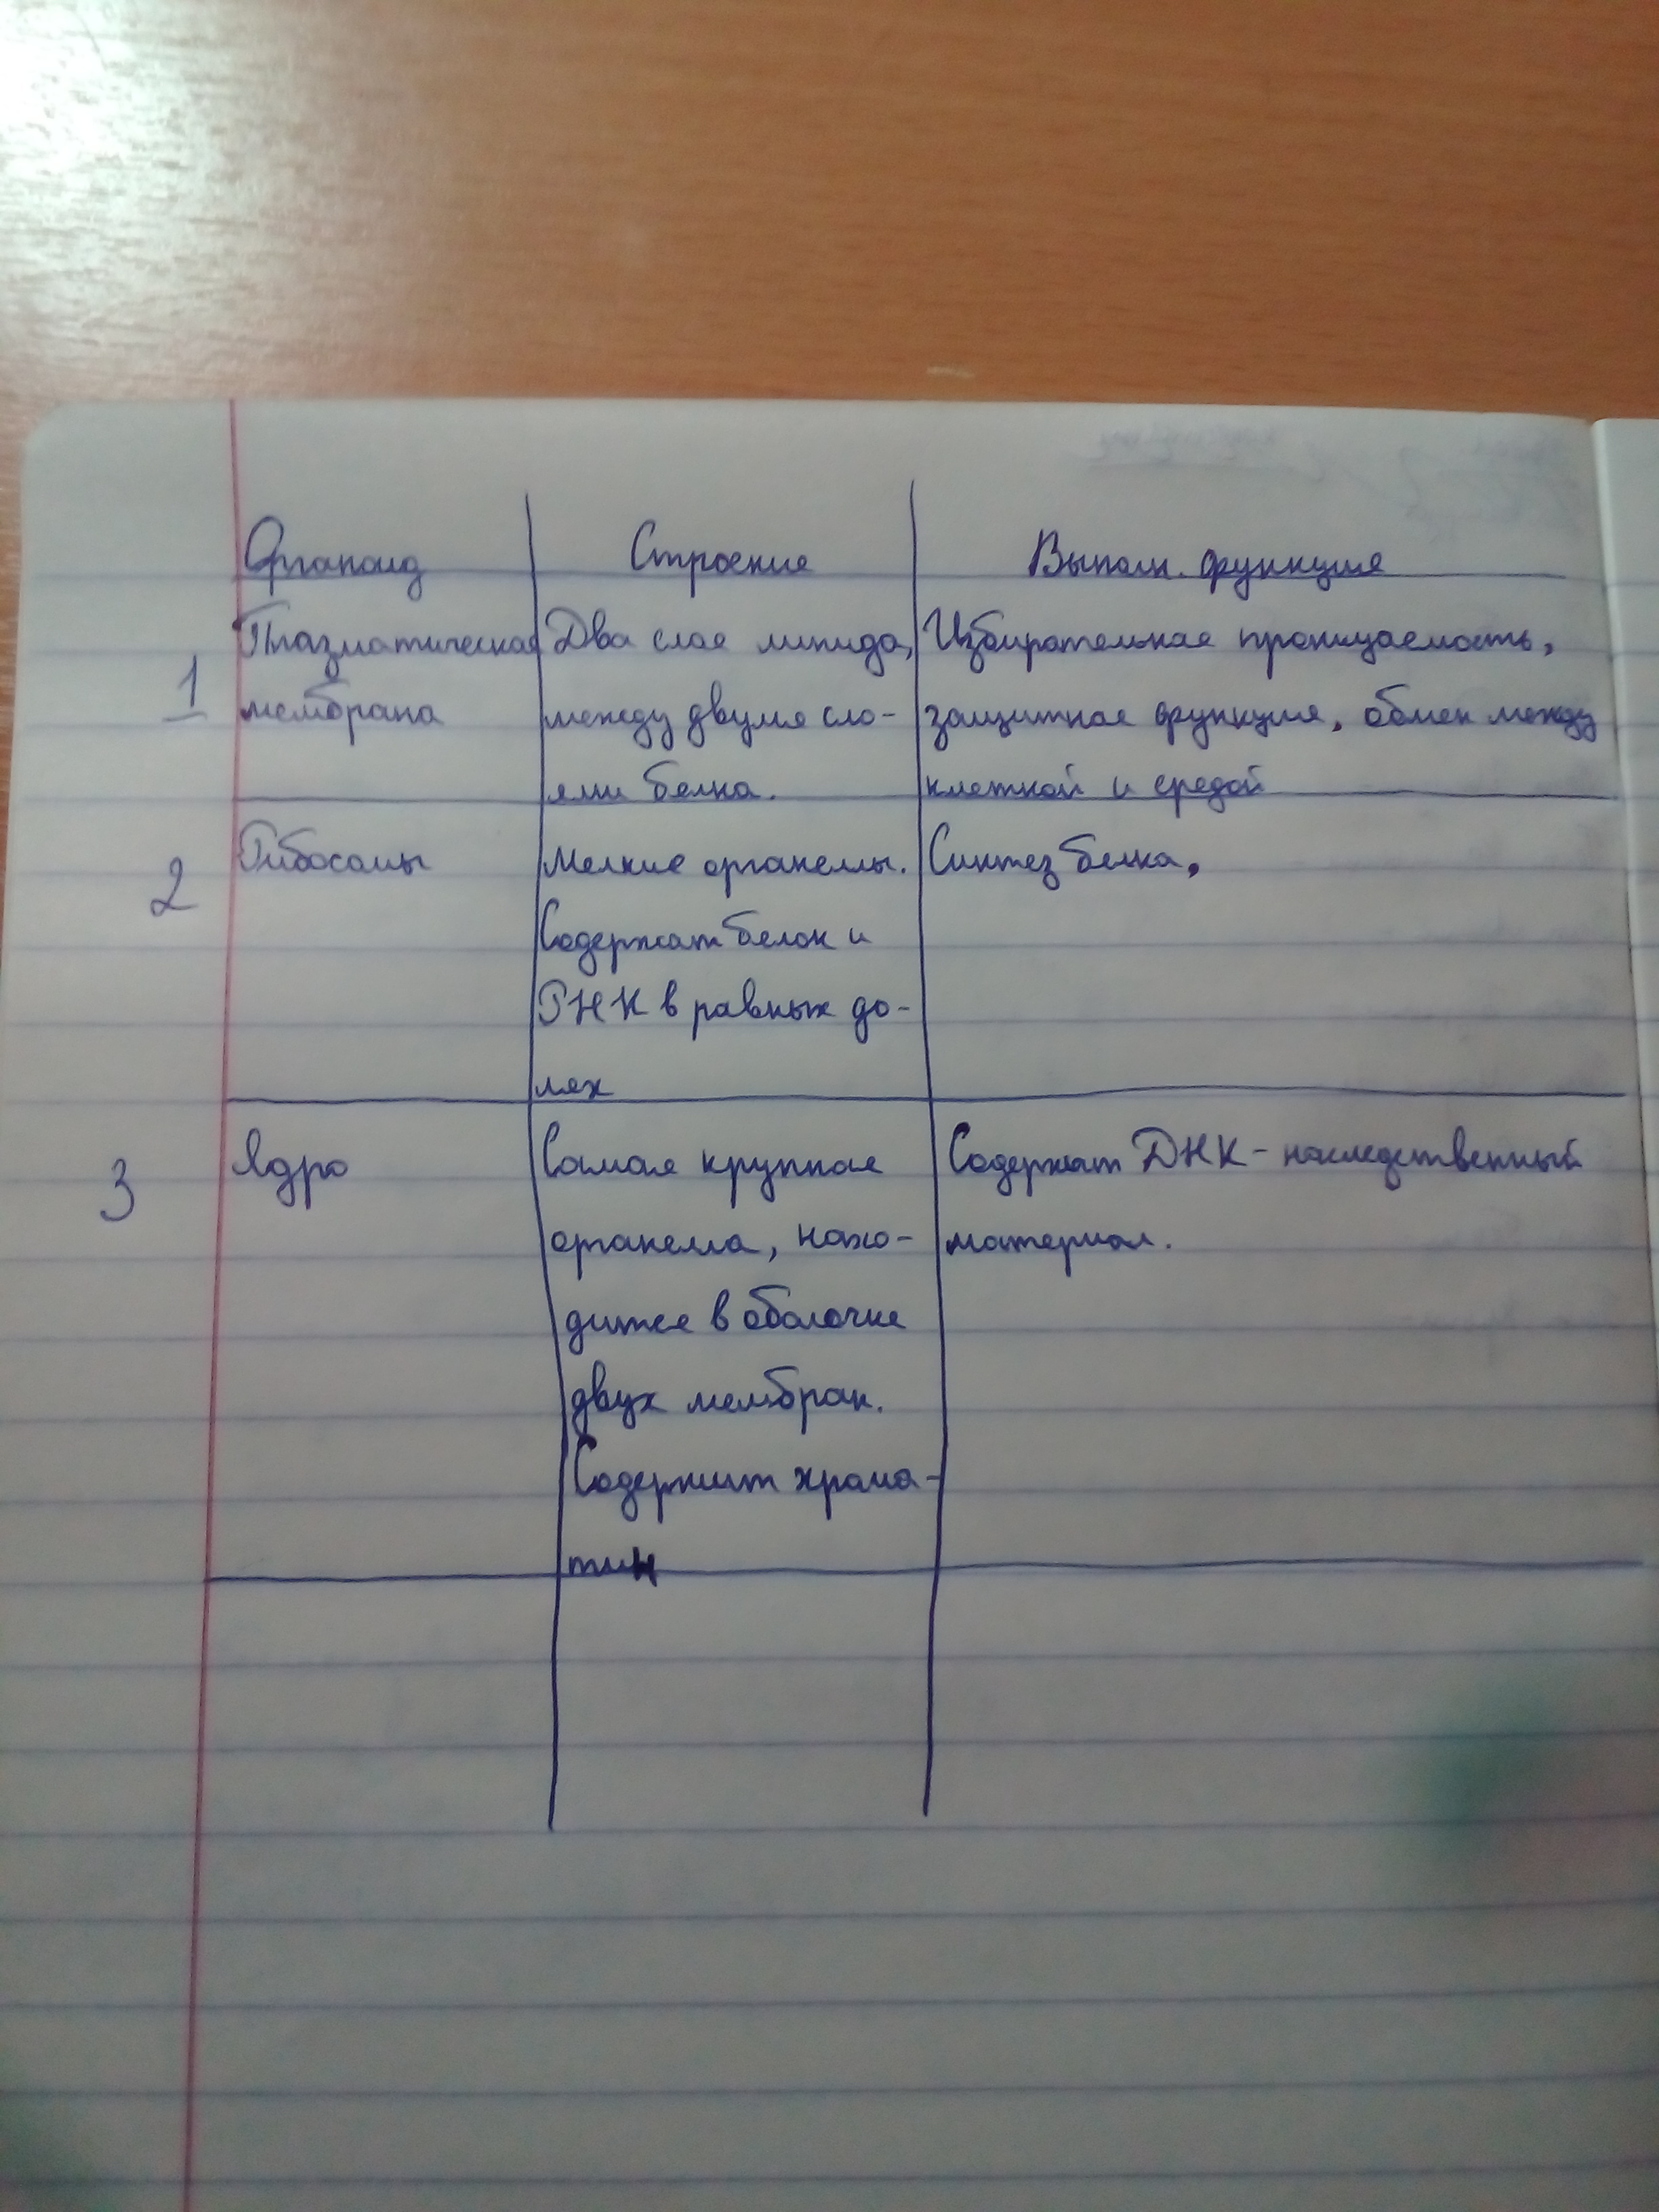 Органоид Строение Выполн. функция
Плазматическая Два слоя липида, Избирательная проницаемость,
1 мембрана между двумя сло- защитная функция, обмен между
ями белка. клеткой и средой
2 Рибосомы Мелкие органеллы. Синтез белка.
Содержат белок и
РНК в равных до-
лях
3 Ядро Самая крупная Содержит ДНК - наследственный
органелла, нахо- материал.
дится в оболочке
двух мембран.
Содержит хрома-
тин